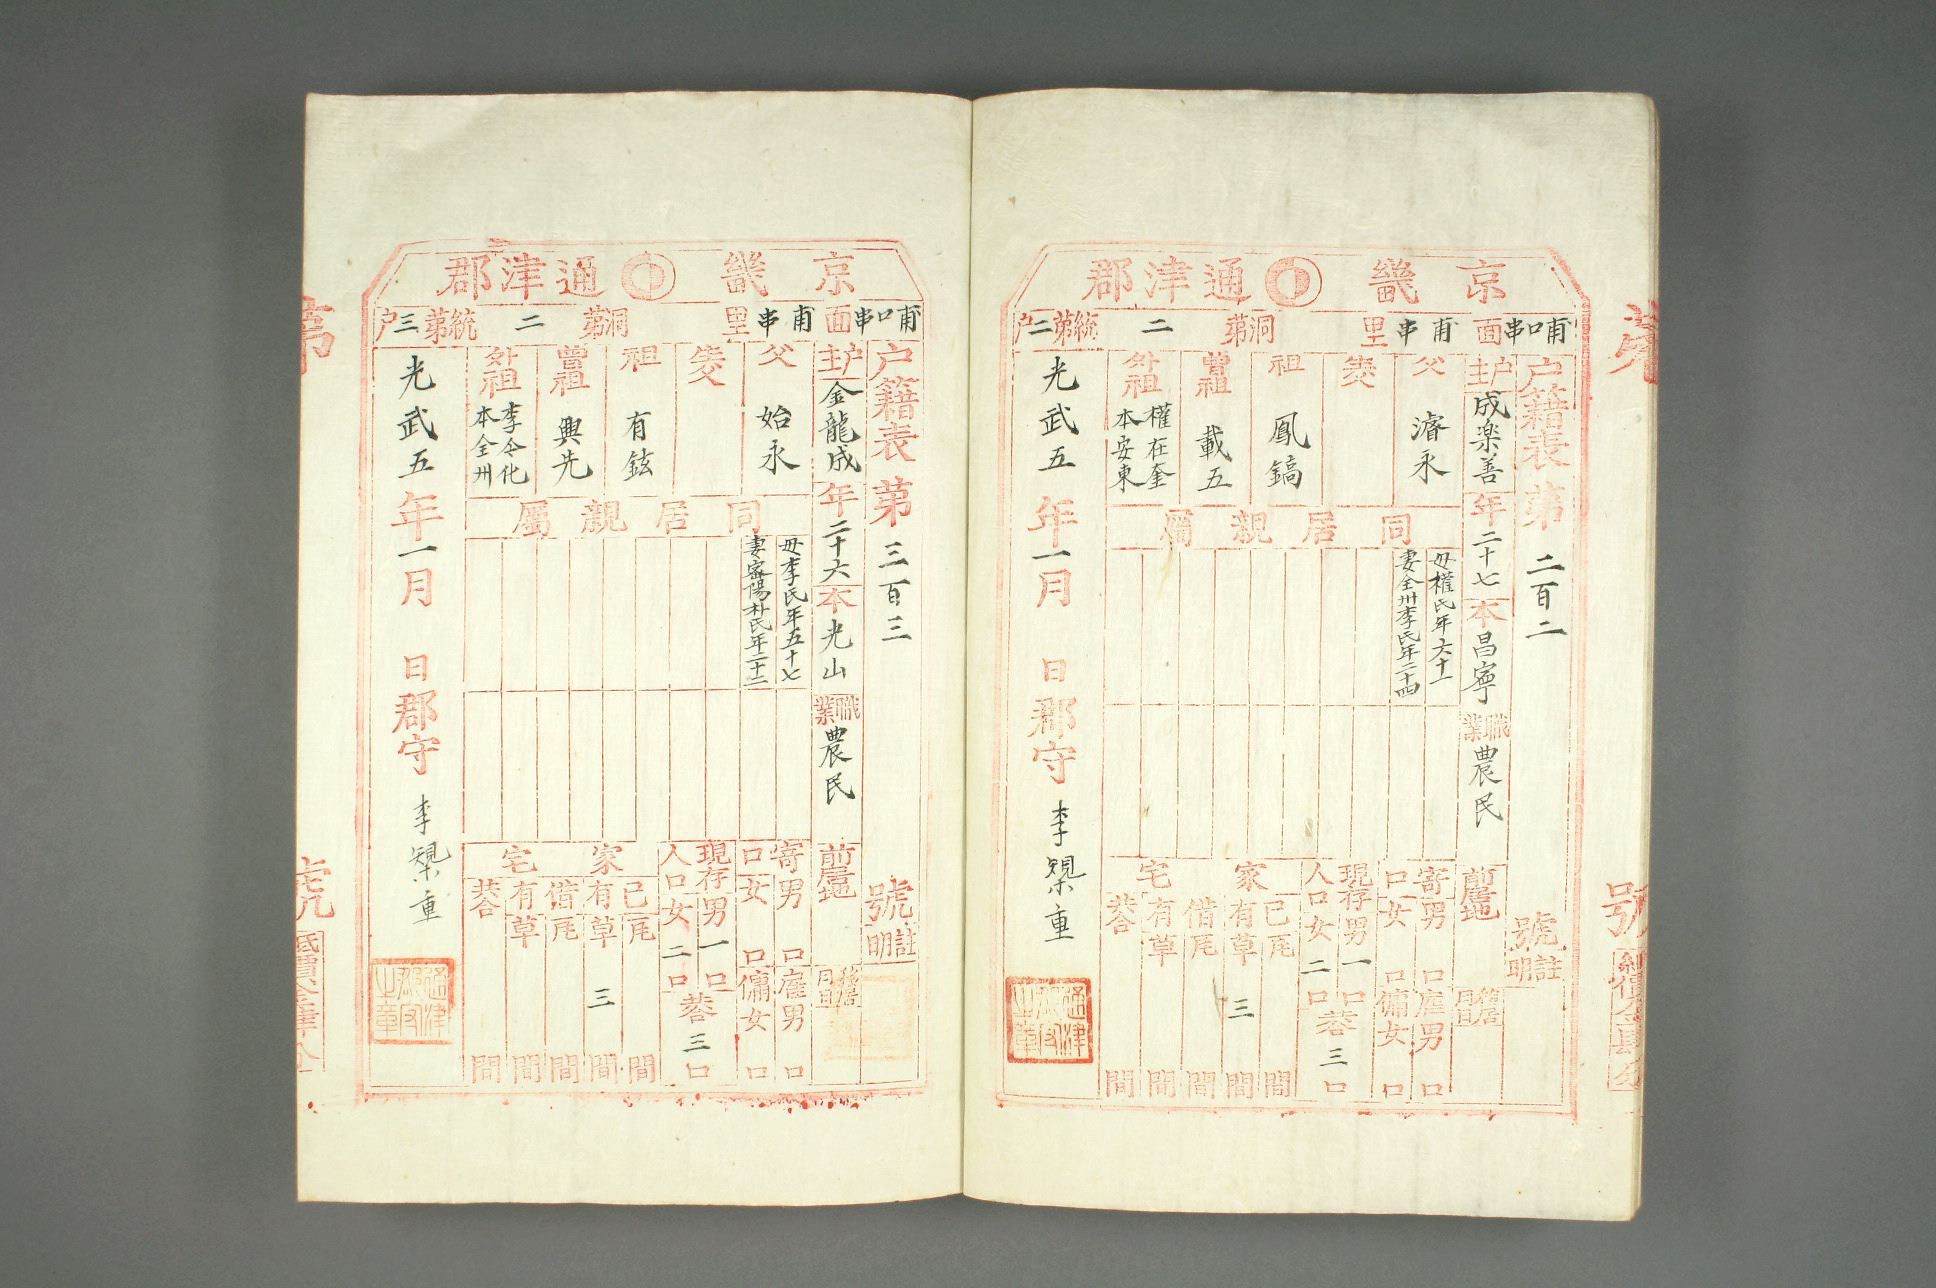 京畿 通津郡
甫口串面 甫串里 洞第二統第二戶
戶籍表 第二百二號
註明
戶主 成楽善 年二十七 本昌寧 職業 農民 前居地 移居月日
父 濬永
生父
祖 鳳鎬
曾祖 載五
外祖 權在奎 本安東
同居親屬
母權氏年六十一
妻全州李氏年二十四
寄口 男 口 女 口
雇男 口 傭女 口
現存人口 男一口 女二口 共三口
家宅
已有 瓦 間 草三間
借有 瓦 間 草 間
共 間
光武五年一月 日 郡守 李 重
通津郡守之章
京畿 通津郡
甫口串面 甫串里 洞第二統第三戶
戶籍表 第三百三號
註明
戶主 金龍成 年二十六 本光山 職業 農民 前居地 移居月日
父 始永
生父
祖 有鉉
曾祖 興先
外祖 李令化 本全州
同居親屬
母李氏年五十七
妻密陽朴氏年二十二
寄口 男 口 女 口
雇男 口 傭女 口
現存人口 男一口 女二口 共三口
家宅
已有 瓦 間 草三間
借有 瓦 間 草 間
共 間
光武五年一月 日 郡守 李 重
通津郡守之章